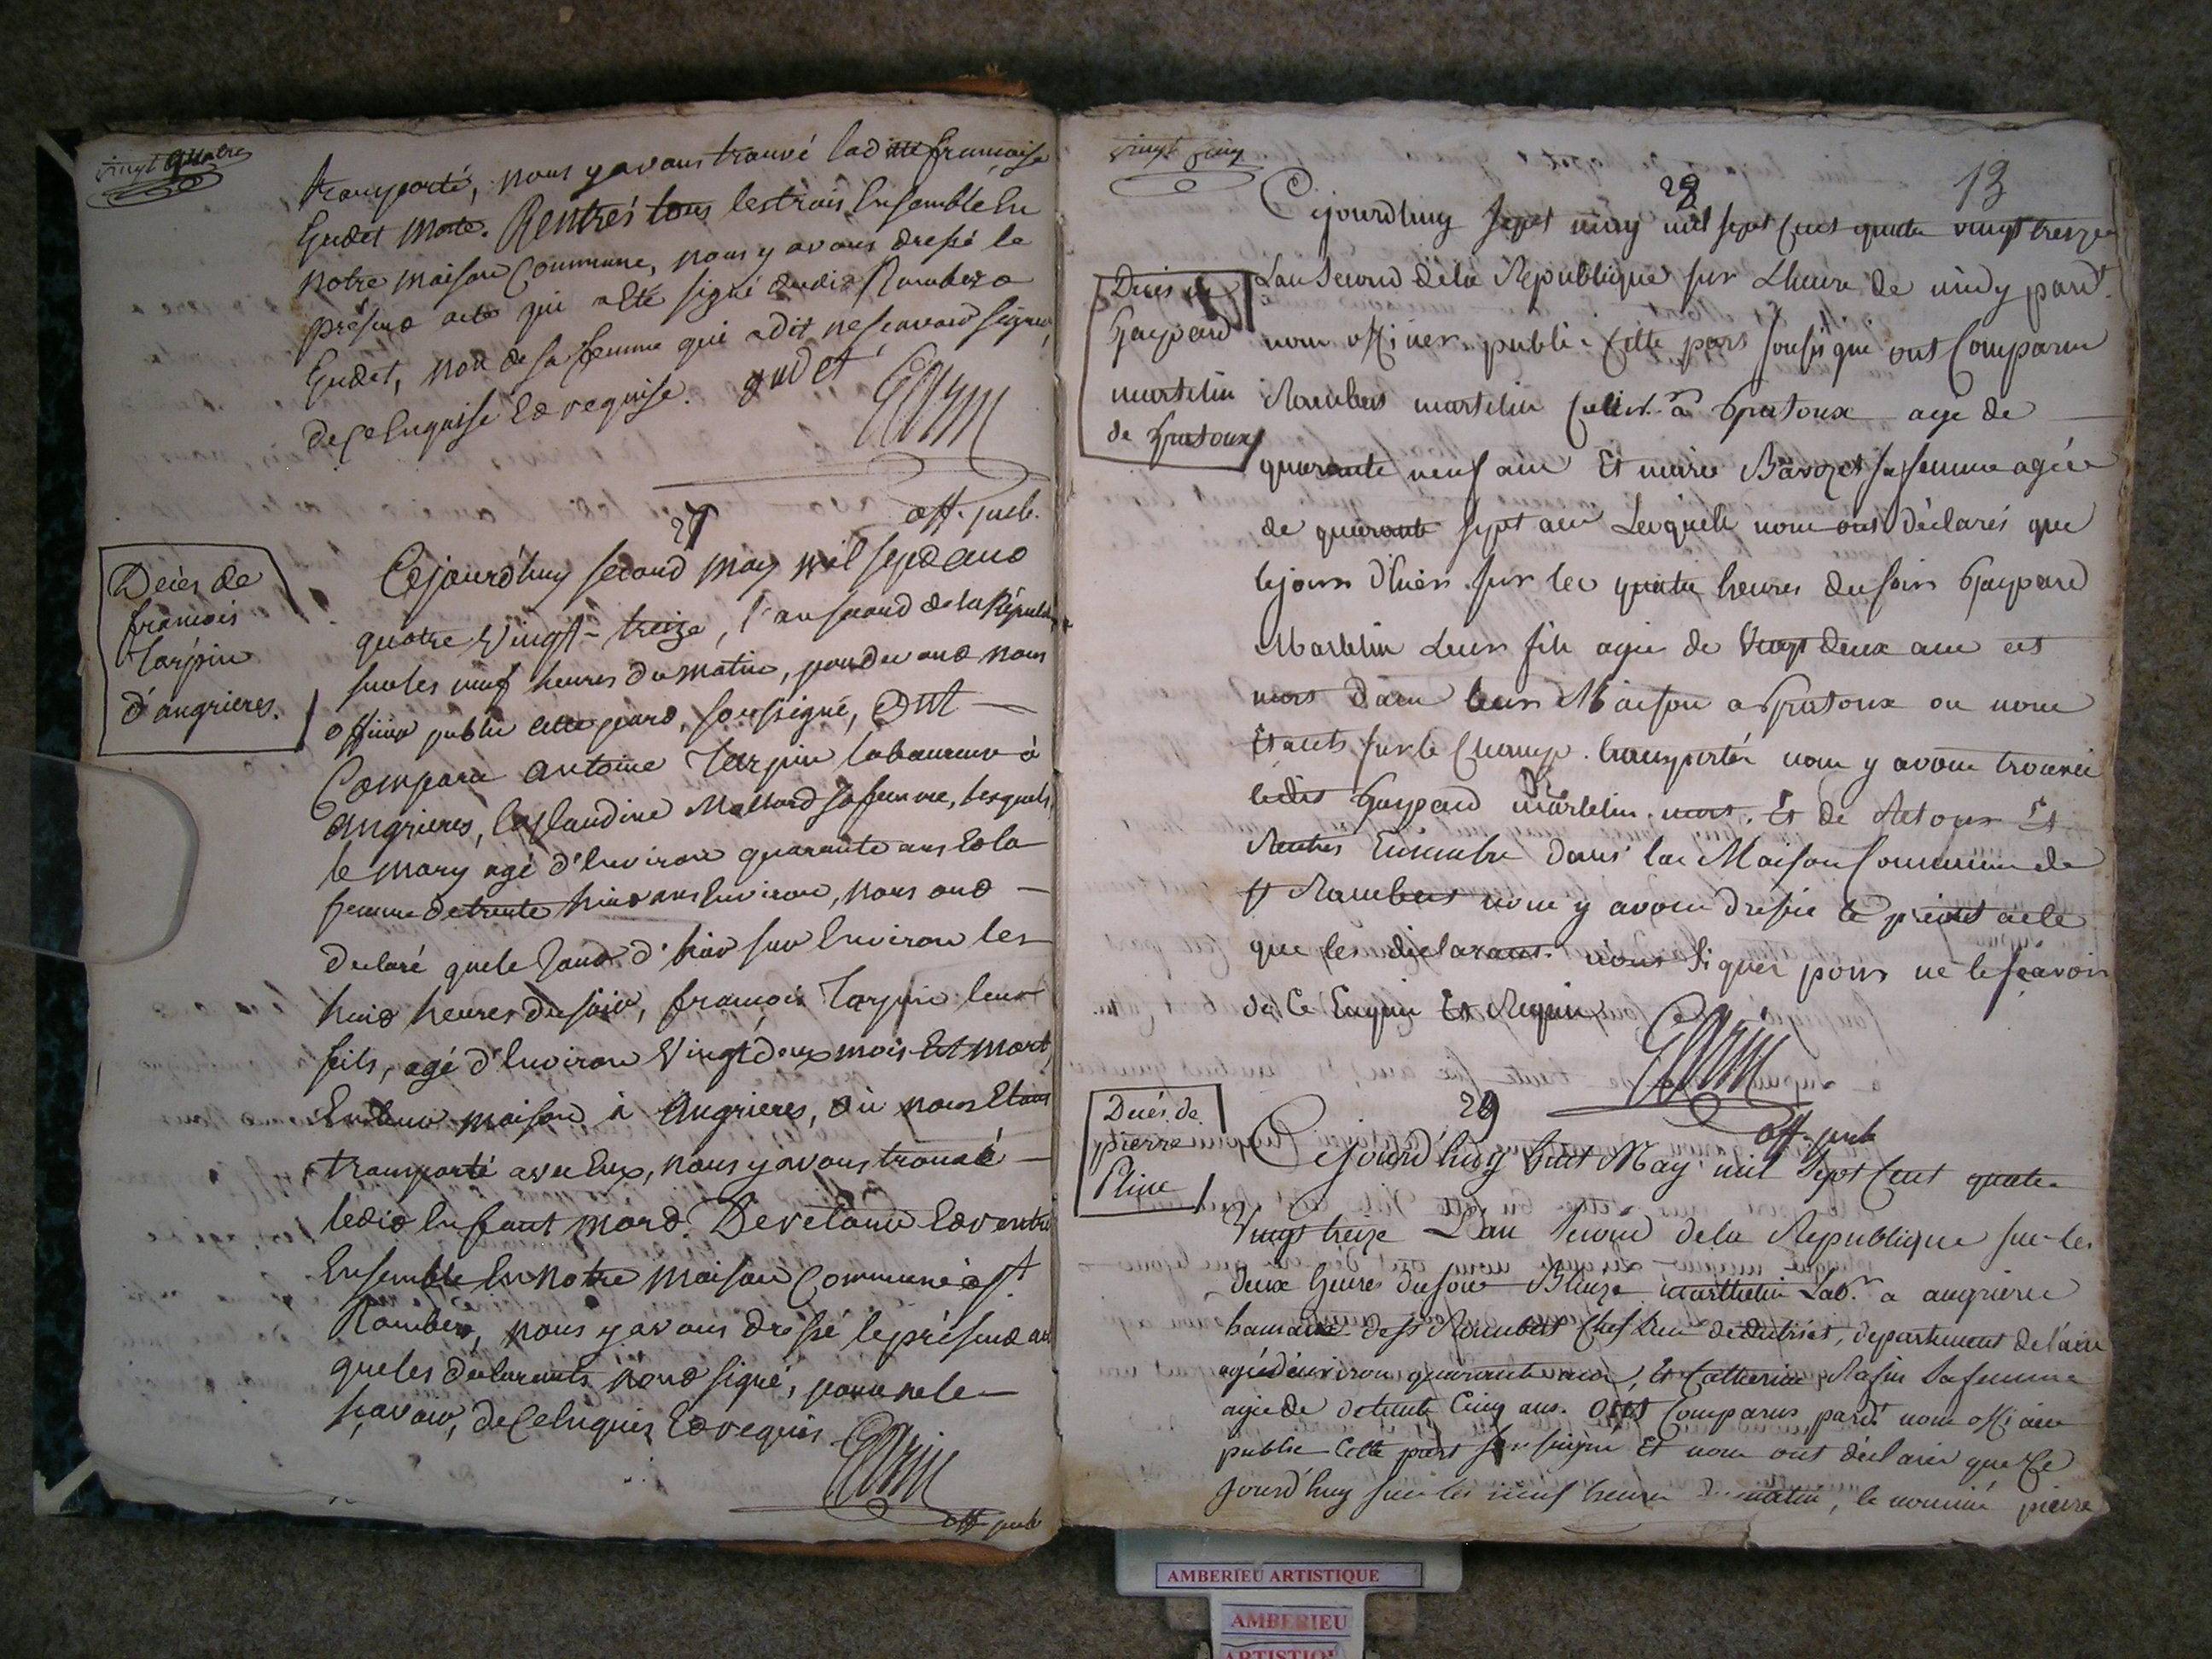 vingt quatre
transporté, nous y avons trouvé laditte françoise
Gudet morte. Rentrés tous les trois Ensemble En
notre maison Commune, nous y avons dressé le
présent acte qui a Eté signé dudit Rambert
Gudet, non de sa femme qui a dit ne sçavoir signer,
de Ce Enquise Et requise. gudet
off. pub.
27
Decès de
françois
Tarpin
d'angrieres.
Cejourd'huy second may mil sept cent
quatre vingt-treize, l'an second de la Répub
sur les neuf heures du matin, pardevant nous
officier public cette part, soussigné, ont
Comparu antoine Tarpin laboureur à
angrieres, Et Claudine Mallard sa femme, lesquels,
le mary agé d'Environ quarante ans Et la
femme de trente huit ans Environ, nous ont
declaré que le Jour d'hier sur Environ les
huit heures du soir, françois Tarpin leur
fils, agé d'Environ Vingt deux mois Est mort,
En leur maison à Angrieres, où nous Etant
transporté avec Eux, nous y avons trouvé
ledit Enfant mort. De retour Et rentrés
Ensemble En notre maison Commune à St
Rambert, nous y avons dressé le présent act
que les declarants n'ont signé, pour ne le
sçavoir, de Ce Enquis Et requis.
off pub
vingt Cinq
13
28
Cejourdhuy sept may mil sept Cent quatre vingt treize
Decès de
Gaspard
martelin
de Gratoux
L'an Second de la Republique sur L'heure de midy pard.
nous officier public Cette part soussigné ont Comparu
Rambert martelin Cultr. à Gratoux age de
quarante neuf ans Et marie Bavozet sa femme agée
de quarante sept ans Lesquels nous ont déclarés que
le jour d'hier sur les quatre heures du soir Gaspard
Martelin Leur fils agée de Vingt deux ans est
mort dans leur Maison a Gratoux ou nous
Etants sur le Champ transportés nous y avons trouvée
ledit Gaspard martelin mort. Et de Retour Et
Rentrés Ensemble dans la Maison Commune de
St Rambert nous y avons dressée le présent acte
que les déclarans n'ont Signer pour ne le sçavoir
de Ce Enquis Et Requis
off. pub
29
Decés de
pierre
Cejourd'huy huit May mil Sept Cent quatre
Vingt treize L'an Second de la Republique sur les
deux heures du soir Blaise marthelin Labr. a angriere
hameau de St Rambert Chef Lieu de district, departement de l'ain
agé d'environ quarante ans, Et Catherine Sa femme
agée de trente Cinq ans. ont Comparus pard. nous officier
public Cette part soussigné Et nous ont déclaré que Ce
Jourd'huy sur les neuf heures du matin, le nommé pierre
AMBERIEU ARTISTIQUE
AMBERIEU
ARTISTIQUE